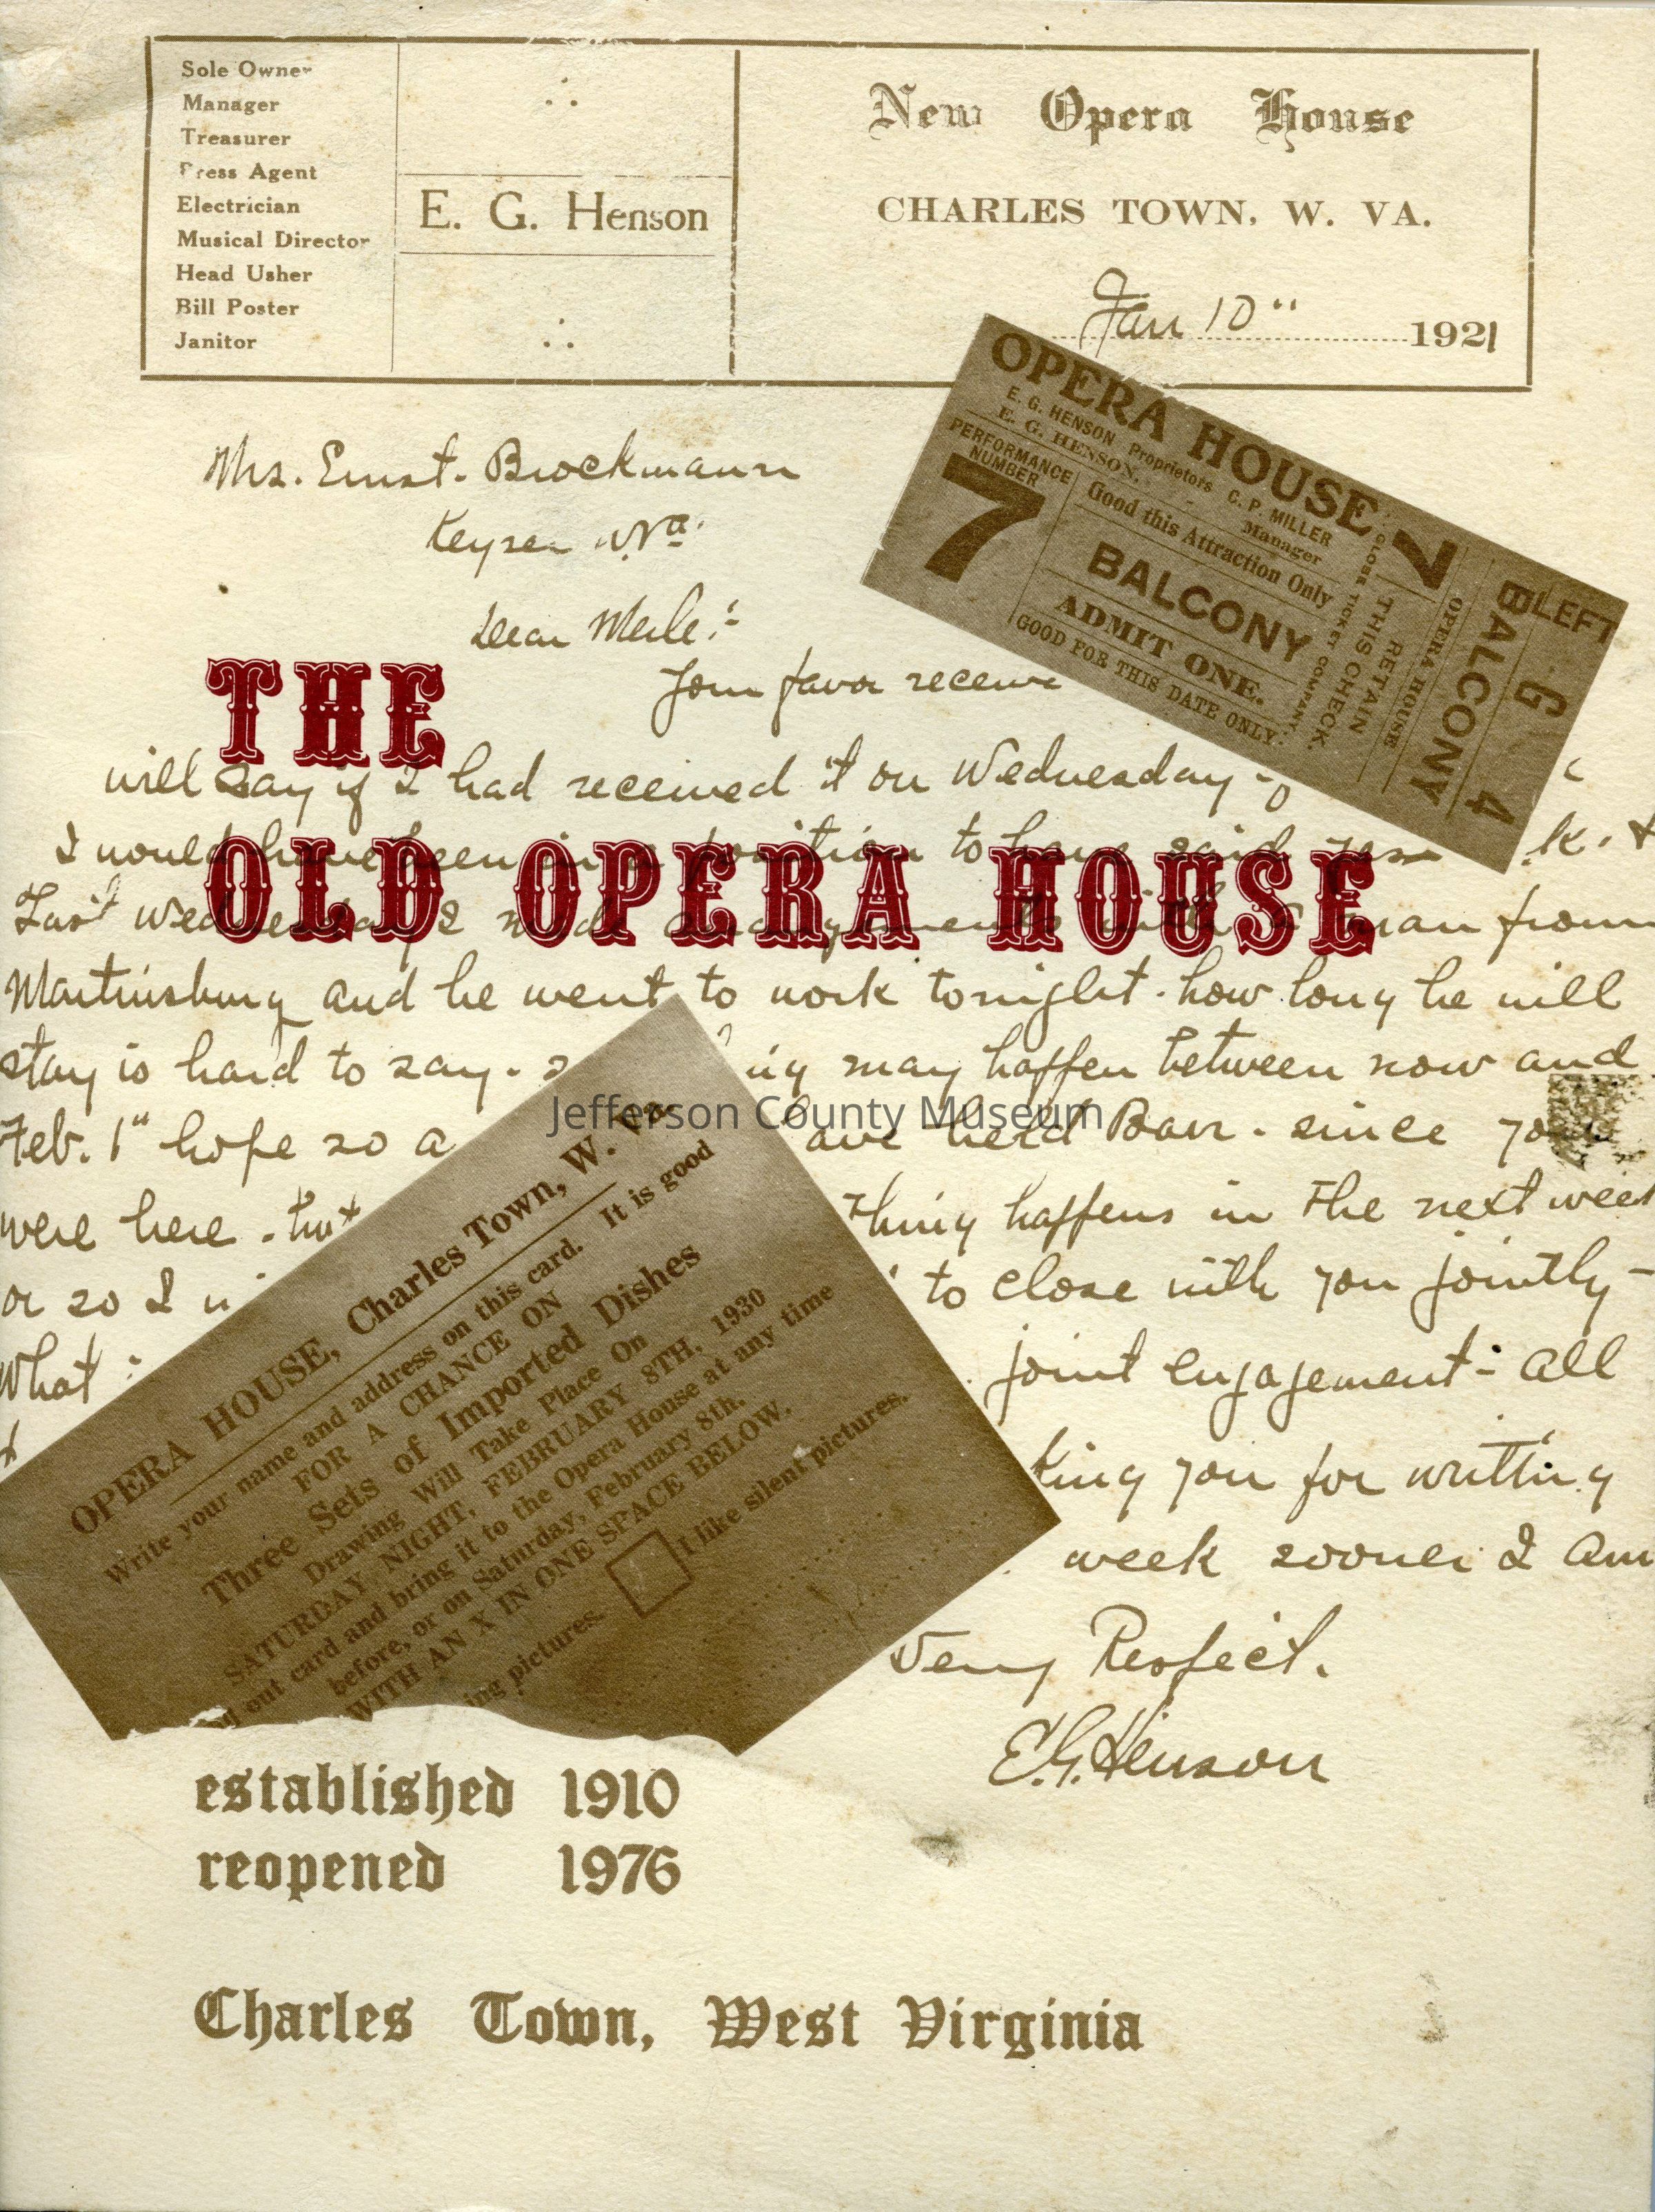 Sole Owner
Manager
Treasurer
Press Agent
Electrician
Musical Director
Head Usher
Bill Poster
Janitor
E. G. Henson
New Opera House
CHARLES TOWN, W. VA.
Jan 10" 1921
Mrs. Ernst. Brockmann
Keyser W.Va.
Dear Merle:-
Your favor receive
will say if I had received it on Wednesday -
I would have been in a position to have said yes &
Last Wednesday I made arrangements with a man from
Martinsburg and he went to work tonight. how long he will
stay is hard to say. ing may happen between now and
Feb. 1" hope so a ave held Barr. since you
were here. but thing happens in the next week
or so I to close with you jointly -
What joint engagement - all
king you for writting
week sooner I am
Very Respect.
E.G. Henson
OPERA HOUSE
E. G. HENSON Proprietors C. P. MILLER
E. G. HENSON, Manager
PERFORMANCE NUMBER
7
Good this Attraction Only
BALCONY
ADMIT ONE.
GOOD FOR THIS DATE ONLY.
GLOBE TICKET COMPANY.
7
RETAIN
THIS CHECK.
OPERA HOUSE
BALCONY
LEFT
G
4
THE
OLD OPERA HOUSE
OPERA HOUSE, Charles Town, W. Va.
Write your name and address on this card. It is good
FOR A CHANCE ON
Three Sets of Imported Dishes
Drawing Will Take Place On
SATURDAY NIGHT, FEBRUARY 8TH, 1930
out card and bring it to the Opera House at any time
before, or on Saturday, February 8th.
WITH AN X IN ONE SPACE BELOW.
ing pictures. I like silent pictures.
Jefferson County Museum
established 1910
reopened 1976
Charles Town, West Virginia